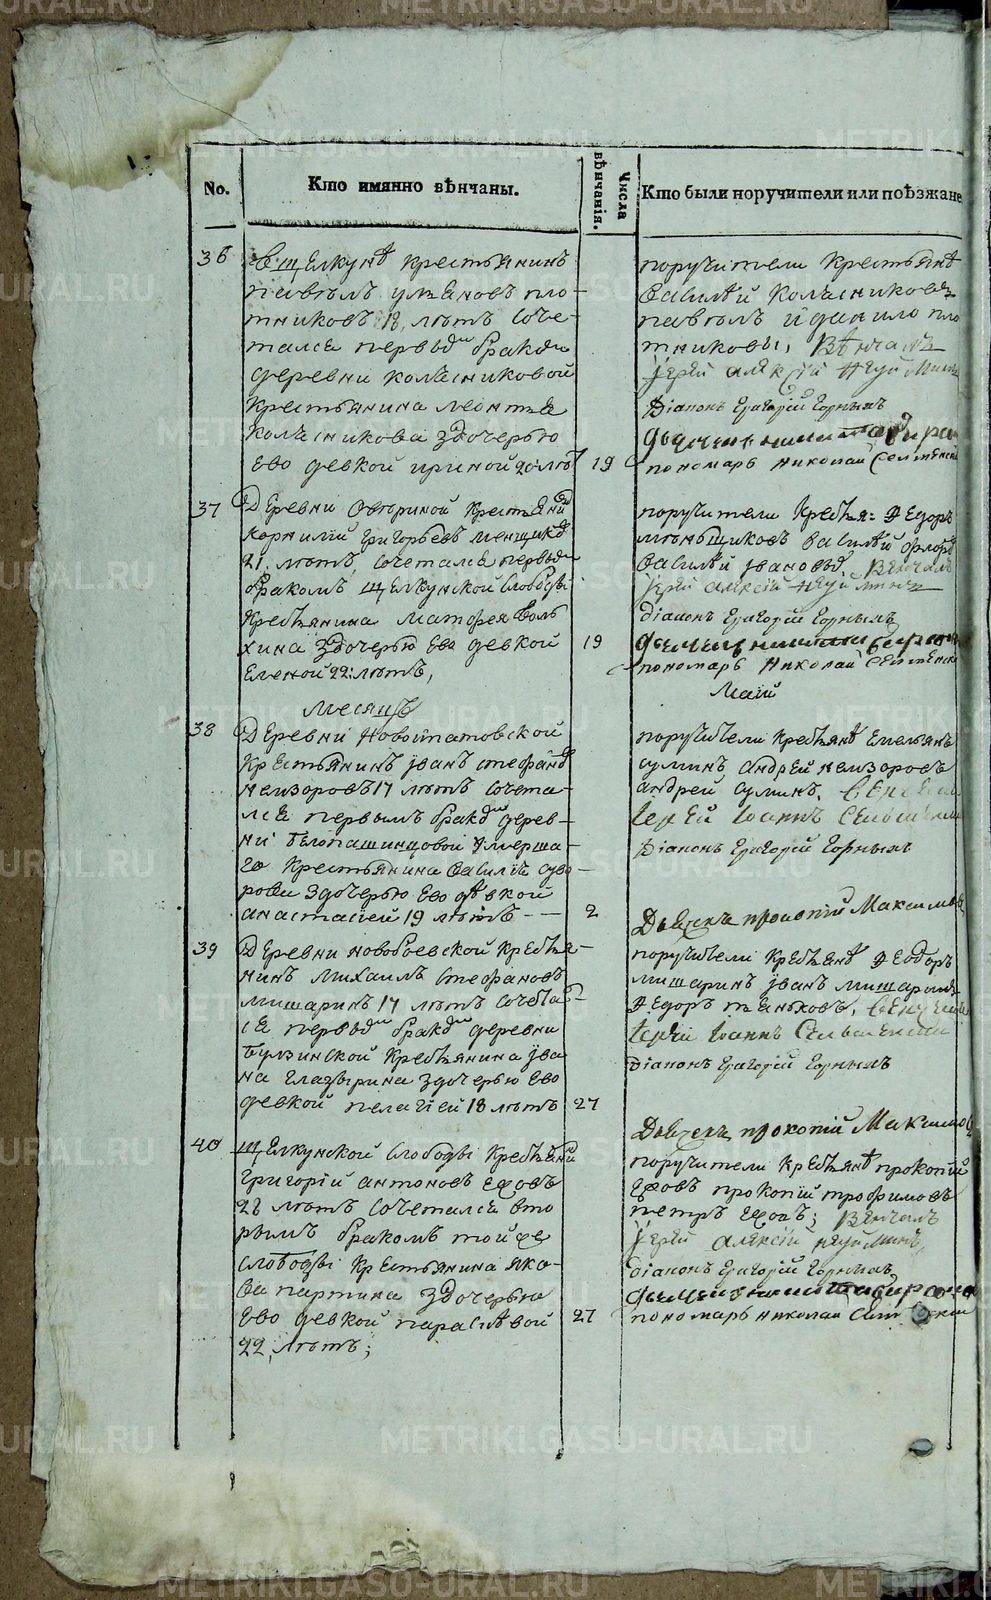 No.
Кто имянно вѣнчаны.
Числа вѣнчанія.
Кто были поручители или поѣзжане
36
в щелкунѣ крестьянинъ
павелъ ульяновъ пло-
тниковъ 18, лѣтъ соче-
тался первымъ бракомъ
деревни колѣсниковой
крестьянина леонтья
колѣсникова здочерью
ево девкой ириной 20 лѣтъ
19
поручители крестьянѣ
василѣй колѣсниковъ
павелъ и данило пло
тниковы, вѣнчалъ
іерей алексій неуймин
діаконъ григорій горныхъ
дьячекъ
пономарь николай
37
деревни
корнилій григорьевъ
21 лѣтъ, сочетался первымъ
бракомъ щелкунской слободы
крестьянина матфея волы
хина здочерью ево девкой
еленой 22: лѣтъ,
19
поручители Кресть: Федоръ
василѣй
василѣй івановы, вѣнчалъ
іерей алексій неуйминъ
діаконъ григорій горныхъ
дьячекъ
пономарь николай
месяцъ
Маій
38
деревни новоипатовской
крестьянинъ іванъ
17 лѣтъ сочета-
лся первымъ бракомъ дерев-
ни умерша-
го крестьянина василія суво-
рова здочерью ево дѣвкой
анастасіей 19 лѣтъ - -
2
поручители крестьянѣ емельянъ
сулинъ андрей
андрей сулинъ, венчалъ
іерей іоаннъ
діаконъ григорій горныхъ
Дьячекъ прокопій Максимовъ
39
деревни крестья-
нинъ михаилъ стефановъ
мишаринъ 17 лѣтъ сочета-
ся первымъ бракомъ деревни
булзинской крестьянина іва
на глазырина здочерью ево
девкой пелагіей 18 лѣтъ
27
поручители крестьянѣ Феодоръ
мишаринъ іванъ мишаринъ
Федоръ венчалъ
іерей іоаннъ
діаконъ григорій горныхъ
Дьячекъ прокопій Максимовъ
40
щелкунской слободы крестьянинъ
григорій антоновъ ежовъ
22 лѣтъ сочетался вто
рымъ бракомъ той же
слободы крестьянина яко-
ва партина здочерью
ево девкой парасьевой
22, лѣтъ;
27
поручители крестьянѣ прокопій
ежовъ прокопій трофимовъ
петръ ежовъ; вѣнчалъ
іерей алексій неуйминъ,
діаконъ григорій горныхъ
дьячекъ
пономарь николай
METRIKI.GASO-URAL.RU